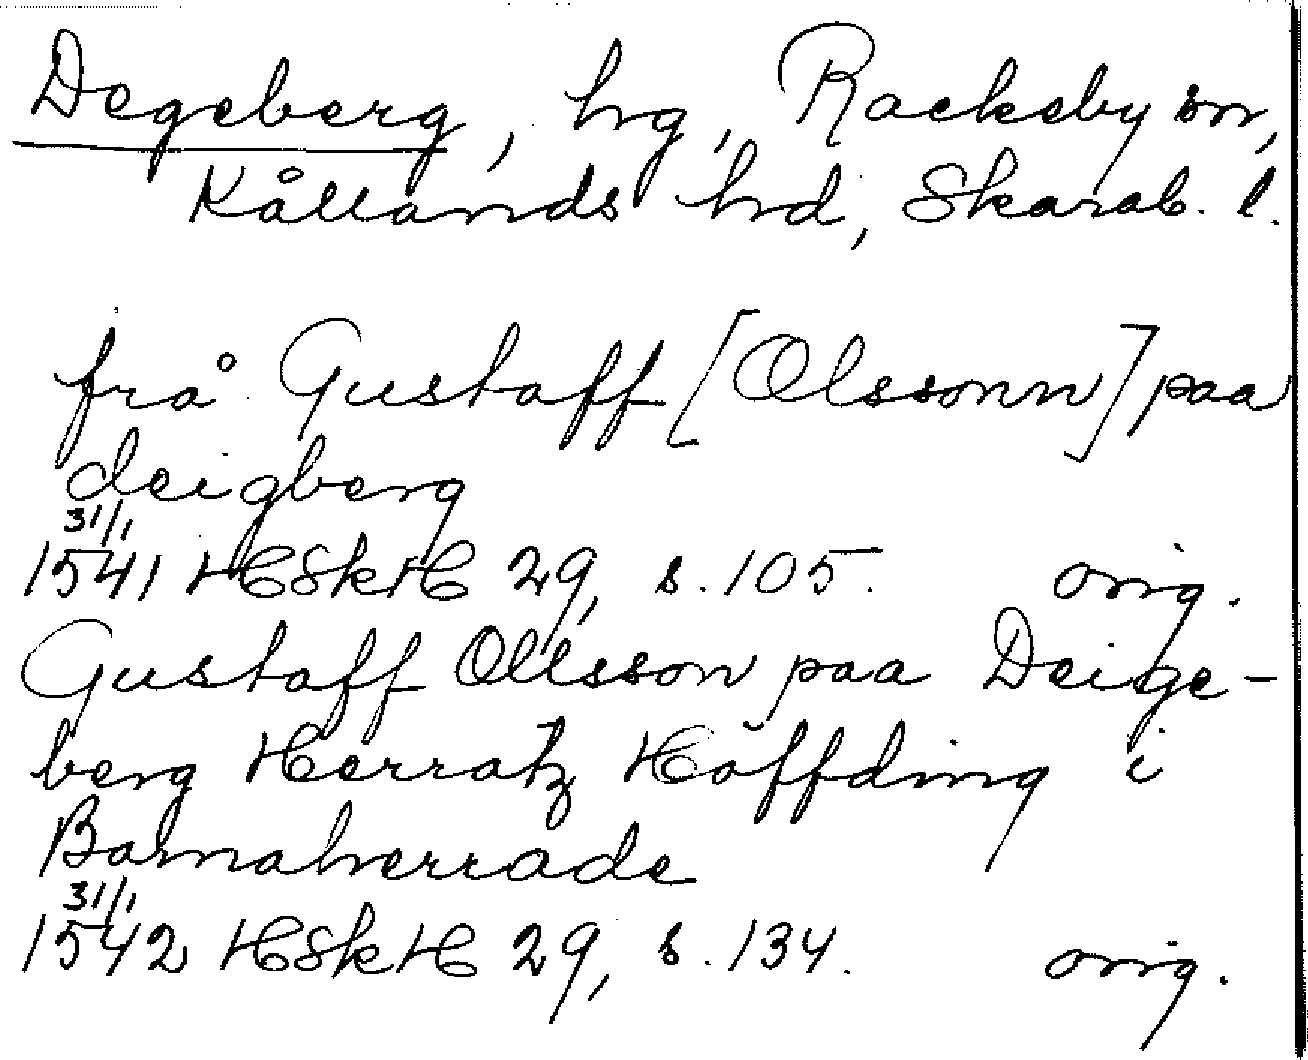 Degeberg, hg, Rackeby sn,
Kållands hd, Skarab. l.
frå Gustaff [Olssonn] paa
deigberg
31/1
1541 HSkH 29, s. 105. orig.
Gustaff Ollsson paa Deige-
berg Herratz Höffding i
Barnaherrade
31/1
1542 HSkH 29, s. 134. orig.